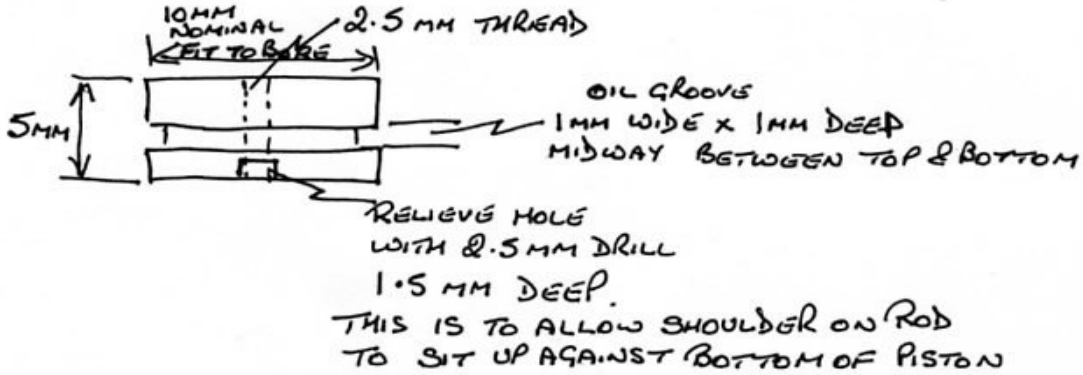 10MM
NOMINAL
FIT TO BORE
2.5 MM THREAD
5MM
OIL GROOVE
1MM WIDE x 1MM DEEP
MIDWAY BETWEEN TOP & BOTTOM
RELIEVE HOLE
WITH 2.5 MM DRILL
1.5 MM DEEP.
THIS IS TO ALLOW SHOULDER ON ROD
TO SIT UP AGAINST BOTTOM OF PISTON